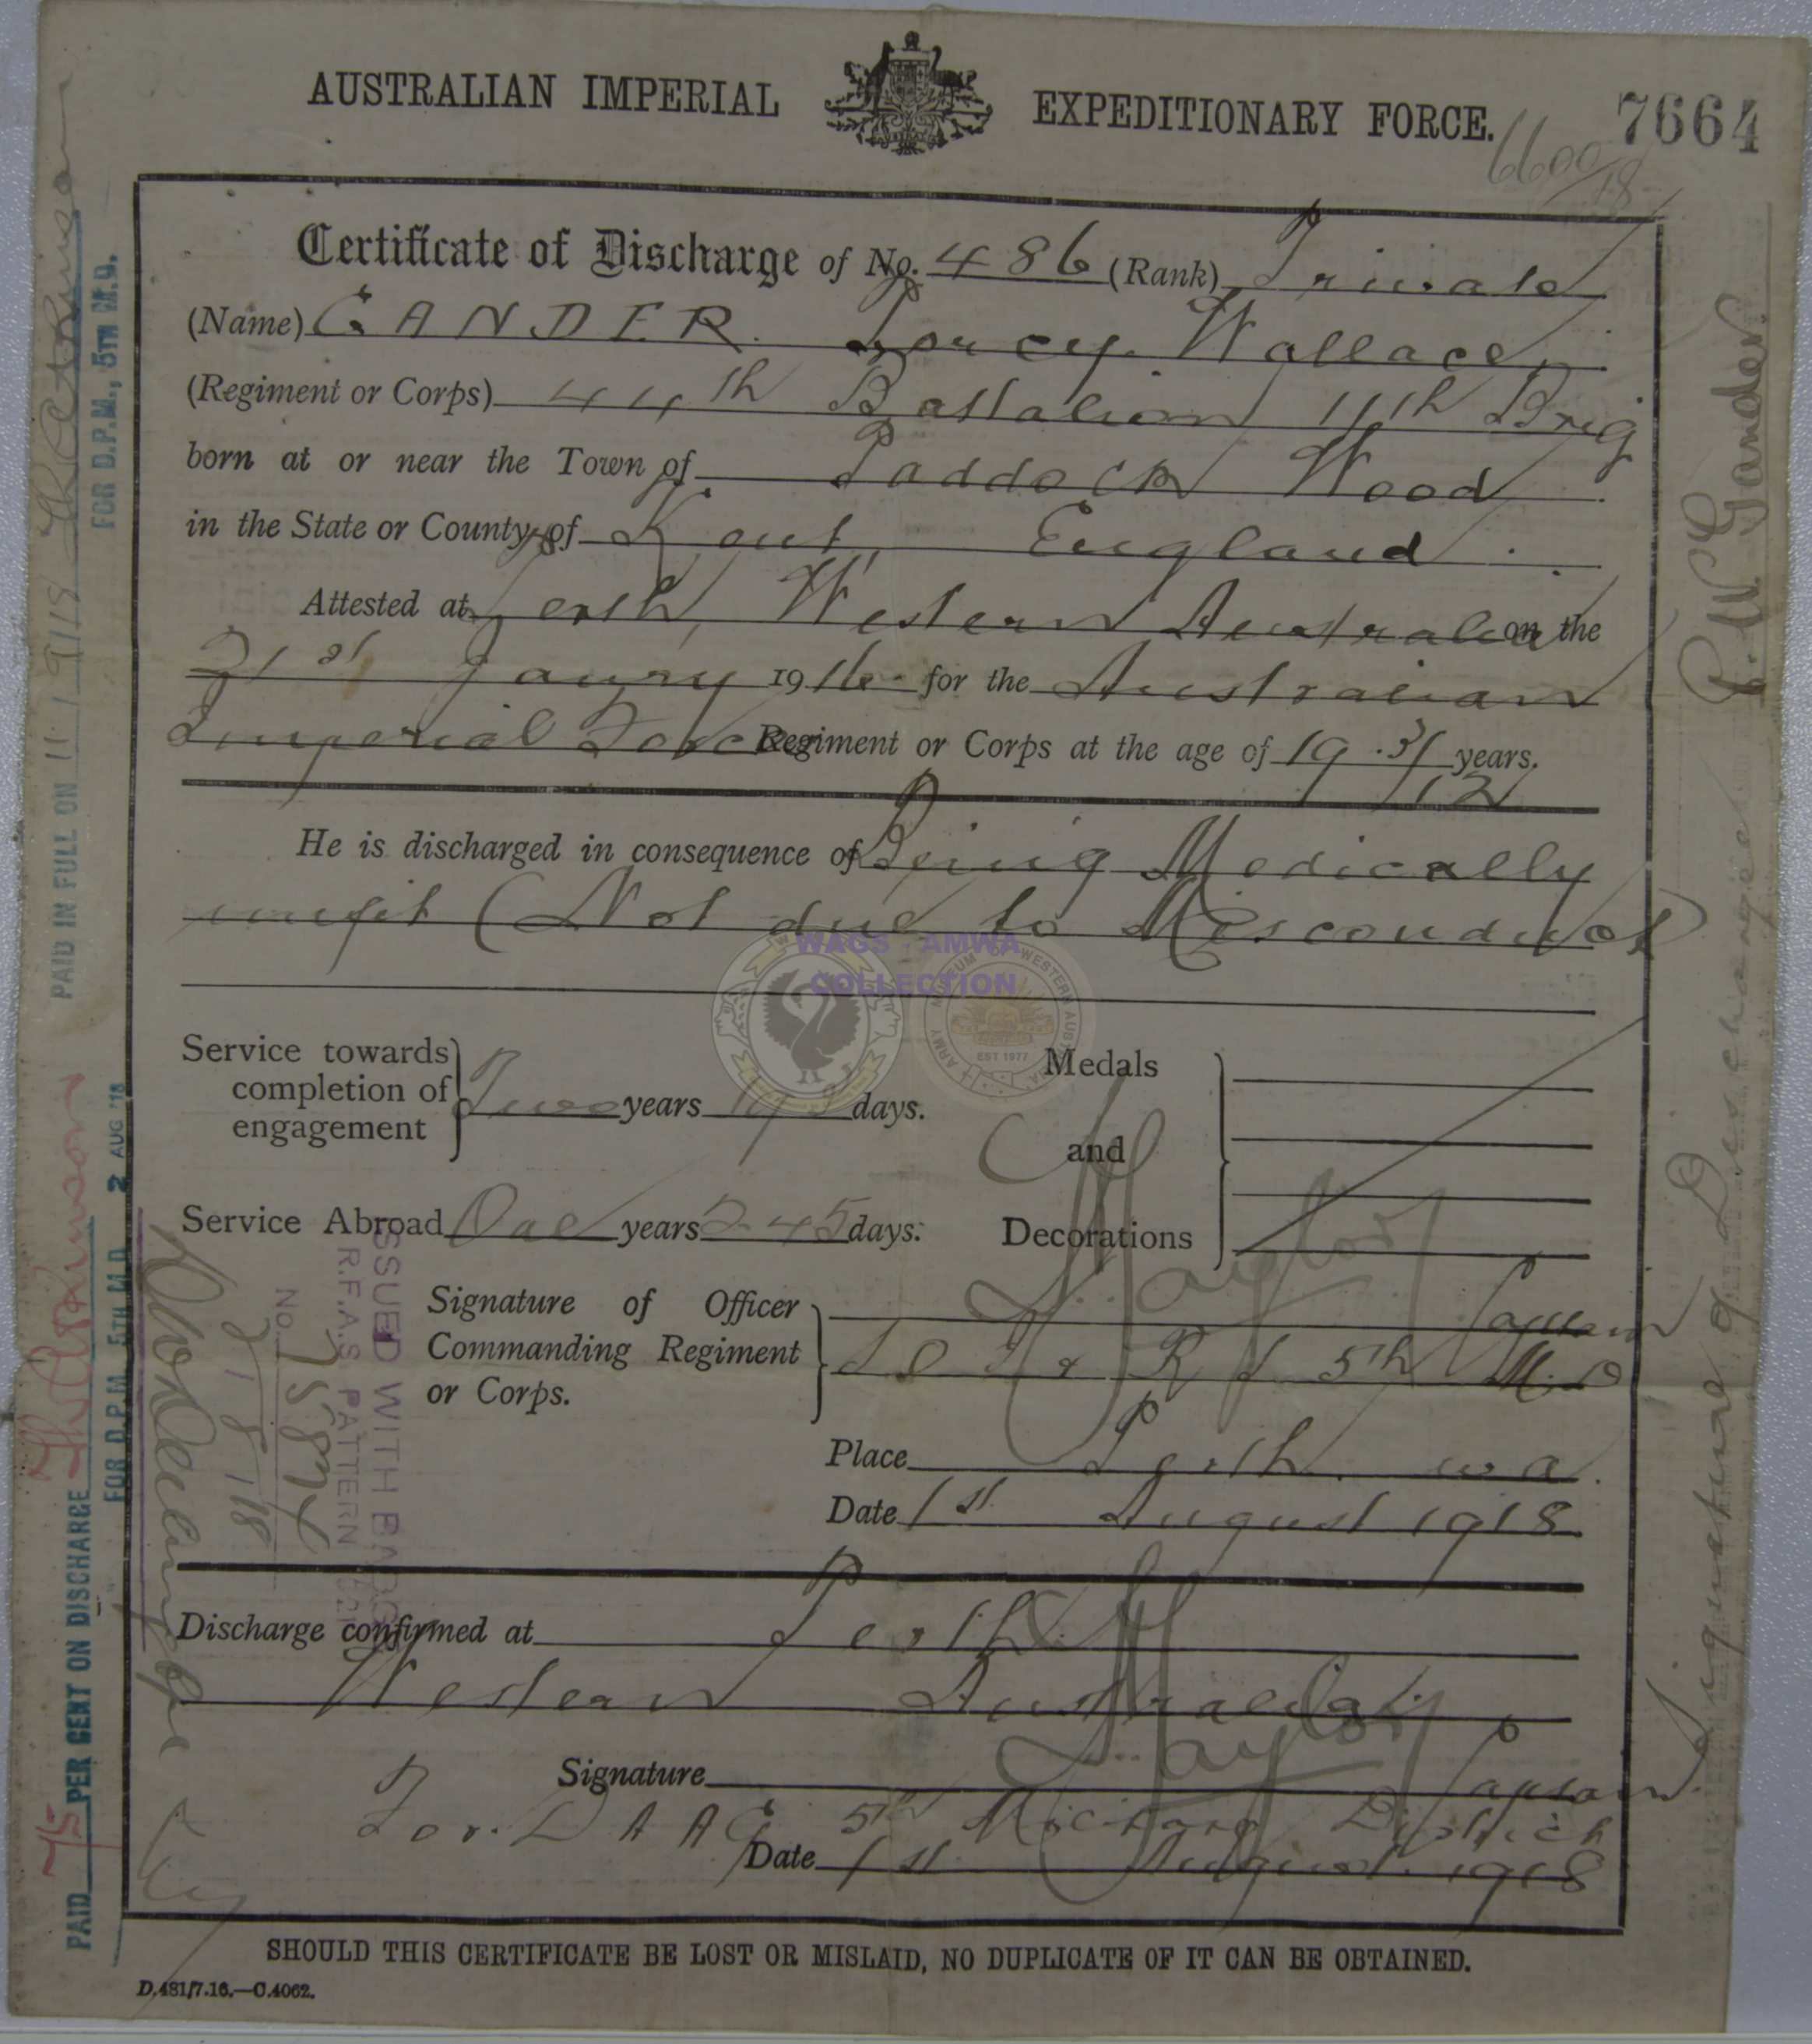 AUSTRALIAN IMPERIAL EXPEDITIONARY FORCE. 7664
6600/18
Certificate of Discharge of No. 486 (Rank) Private
(Name) GANDER. Percy. Wallace,
(Regiment or Corps) 44th Battalion 11th Brig
born at or near the Town of Paddock Wood
in the State or County of Kent, England.
Attested at Perth, Western Australia on the
31st Janry 1916 for the Australian
Imperial Force Regiment or Corps at the age of 19. years.
He is discharged in consequence of Being Medically
unfit (Not due to Misconduct)
WAGS - AMWA
COLLECTION
ARMY MUSEUM OF WESTERN AUSTRALIA
EST 1977
Service towards
completion of
engagement
Two years days.
Medals
and
Decorations
Service Abroad One years 245 days.
Signature of Officer
Commanding Regiment
or Corps.
Taylor Captain
5th M.D
Place Perth. W A.
Date 1st August 1918
Discharge confirmed at Perth
Western Australia
Signature Taylor Captain
For. D A A G 5th Military District
Date 1st August. 1918
SHOULD THIS CERTIFICATE BE LOST OR MISLAID, NO DUPLICATE OF IT CAN BE OBTAINED.
D.481/7.16.—C.4062.
PAID IN FULL ON 11/9/18
FOR D.P.M., 5TH M.D.
PAID 75 PER CENT ON DISCHARGE
FOR D.P.M. 5TH M.D. 2 AUG '18
ISSUED WITH BADGE
R.F.A.S PATTERN
NO.
2/8/18
P. W. Gander.
Signature on Discharge